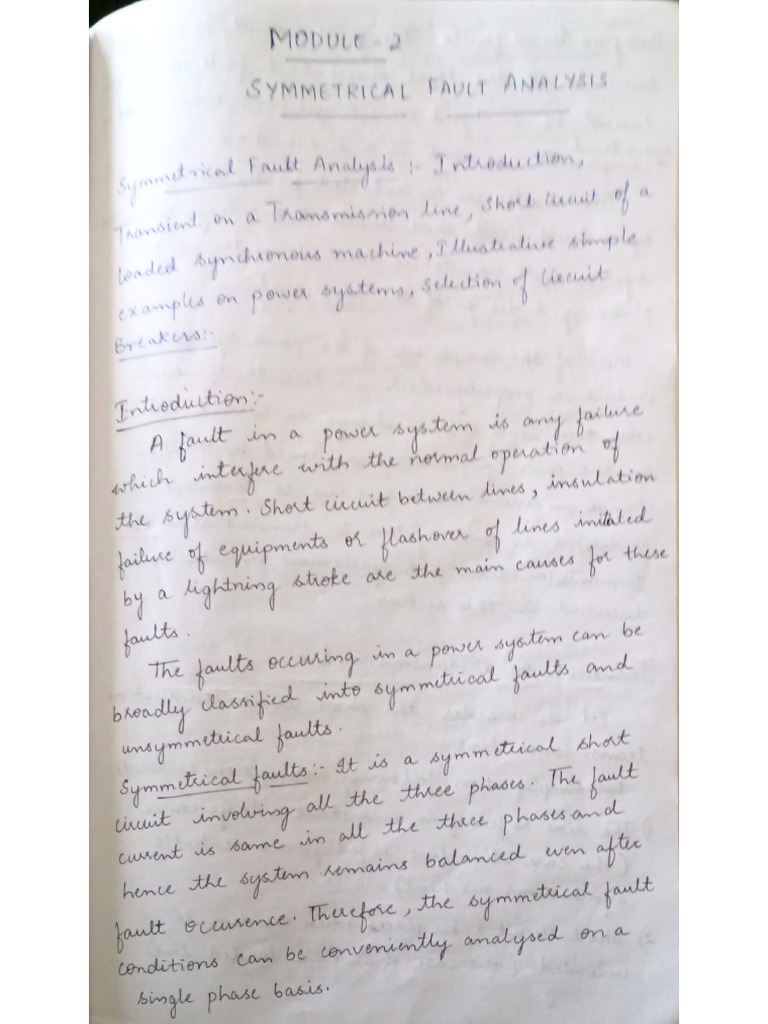 MODULE - 2
SYMMETRICAL FAULT ANALYSIS
Symmetrical Fault Analysis :- Introduction,
Transient on a Transmission line, Short circuit of a
loaded synchronous machine, Illustrative simple
examples on power systems, Selection of Circuit
Breakers:-
Introduction:-
A fault in a power system is any failure
which interfere with the normal operation of
the system. Short circuit between lines, insulation
failure of equipments or flashover of lines initiated
by a lightning stroke are the main causes for these
faults.
The faults occuring in a power system can be
broadly classified into symmetrical faults and
unsymmetrical faults.
Symmetrical faults:- It is a symmetrical short
circuit involving all the three phases. The fault
current is same in all the three phases and
hence the system remains balanced even after
fault occurence. Therefore, the symmetrical fault
conditions can be conveniently analysed on a
single phase basis.